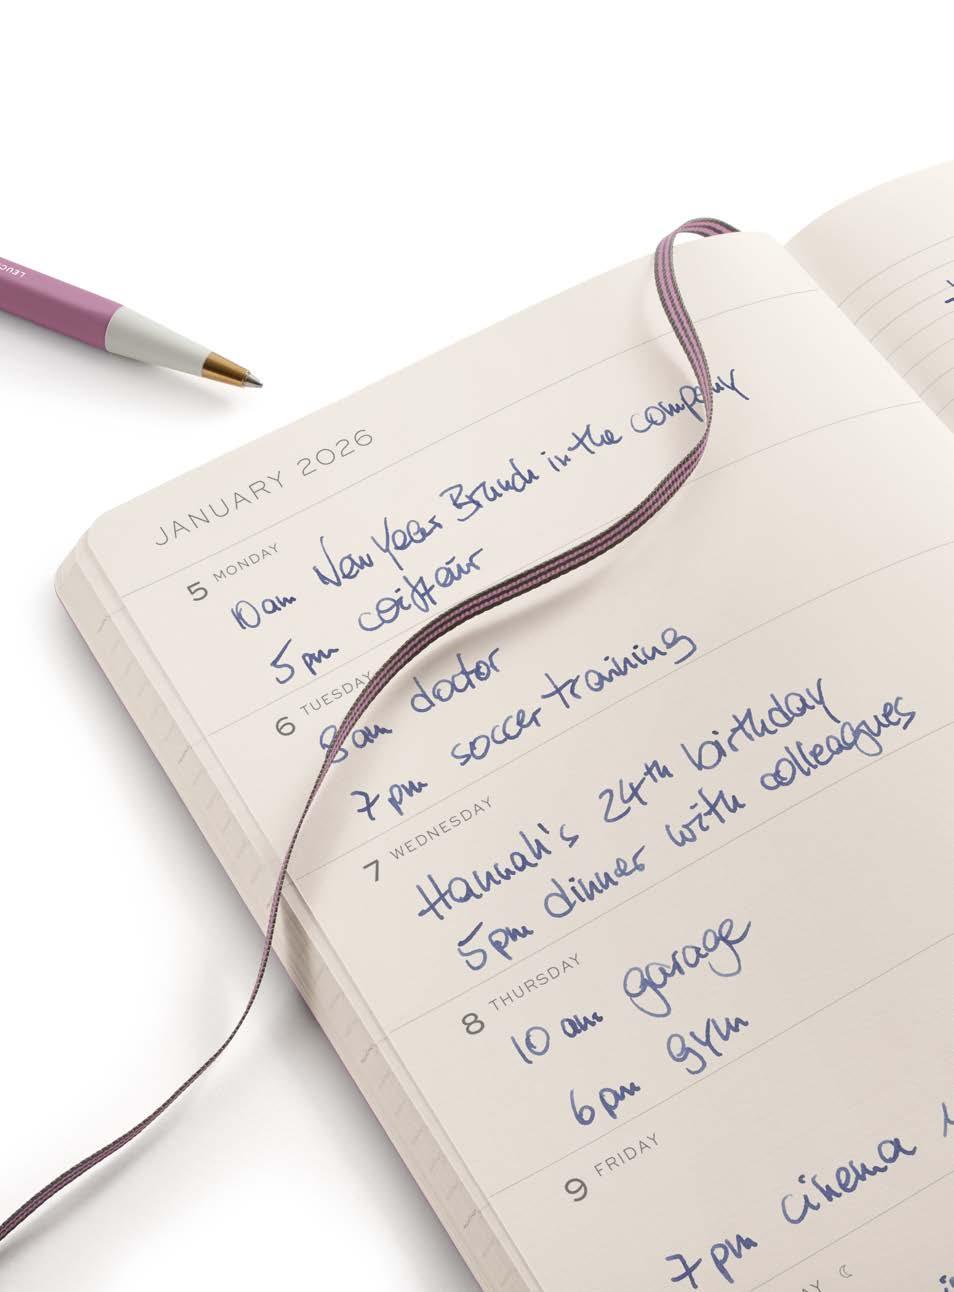 JANUARY 2026
5 MONDAY
10 am New Year Brunch in the company
5 pm coiffeur
6 TUESDAY
8 am doctor
7 pm soccer training
7 WEDNESDAY
Hannah's 24th birthday
5 pm dinner with colleagues
8 THURSDAY
10 am garage
6 pm gym
9 FRIDAY
7 pm cinema